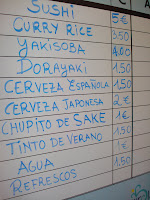 SUSHI 5€
CURRY RICE 3.50
YAKISOBA 4.00
DORAYAKI 1.50
CERVEZA ESPAÑOLA 1.50
CERVEZA JAPONESA 2€
CHUPITO DE SAKE 1€
TINTO DE VERANO 1.50
AGUA 1€
REFRESCOS 1.50